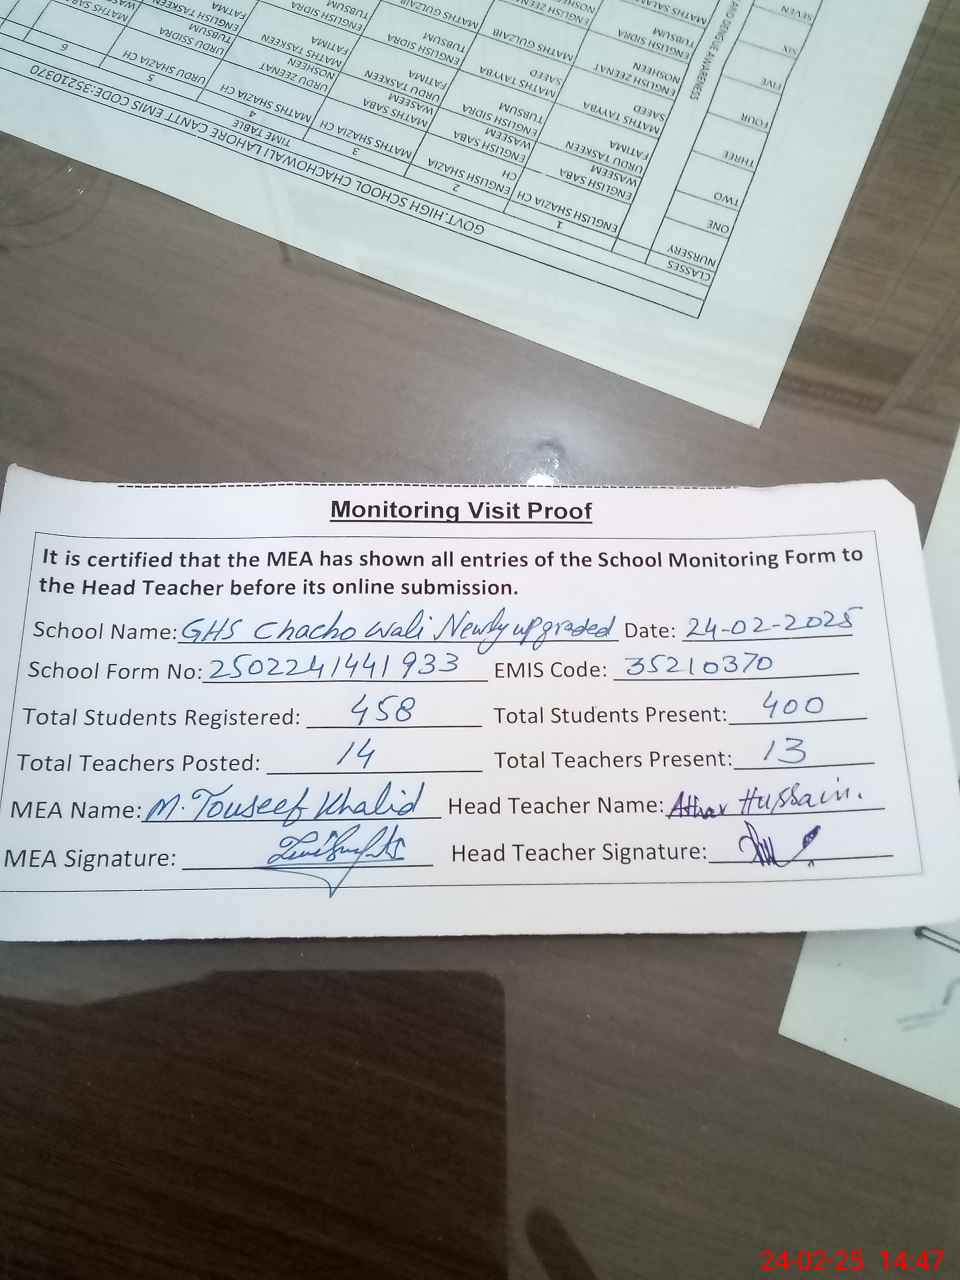 GOVT: HIGH SCHOOL CHACHOWALI LAHORE CANTT EMIS CODE:35210370
TIME TABLE
CLASSES 1 2 3 4 5 6
NURSERY ENGLISH SHAZIA CH ENGLISH SHAZIA CH MATHS SHAZIA CH MATHS SHAZIA CH URDU SHAZIA CH
ONE ENGLISH SABA WASEEM ENGLISH SABA WASEEM MATHS SABA WASEEM URDU ZEENAT NOSHEEN URDU SSIDRA TUBSUM MATHS SABA
TWO URDU TASKEEN FATIMA ENGLISH SIDRA TUBSUM URDU TASKEEN FATIMA MATHS TASKEEN FATIMA ENGLISH TASKEEN FATIMA
THREE MATHS TAYYBA SAEED MATHS TAYYBA SAEED ENGLISH SIDRA TUBSUM ENGLISH SIDRA TUBSUM
FOUR ENGLISH ZEENAT NOSHEEN MATHS GULZAIB MATHS GULZAIB
FIVE ENGLISH SIDRA TUBSUM ENGLISH ZEENAT
SIX
SEVEN
AND DENGUE AWARENESS
Monitoring Visit Proof
It is certified that the MEA has shown all entries of the School Monitoring Form to
the Head Teacher before its online submission.
School Name: GHS Chacho wali Newly upgraded Date: 24-02-2025
School Form No: 2502241441933 EMIS Code: 35210370
Total Students Registered: 458 Total Students Present: 400
Total Teachers Posted: 14 Total Teachers Present: 13
MEA Name: M. Touseef Khalid Head Teacher Name: Athar Hussain.
MEA Signature: Head Teacher Signature:
24-02-25 14:47